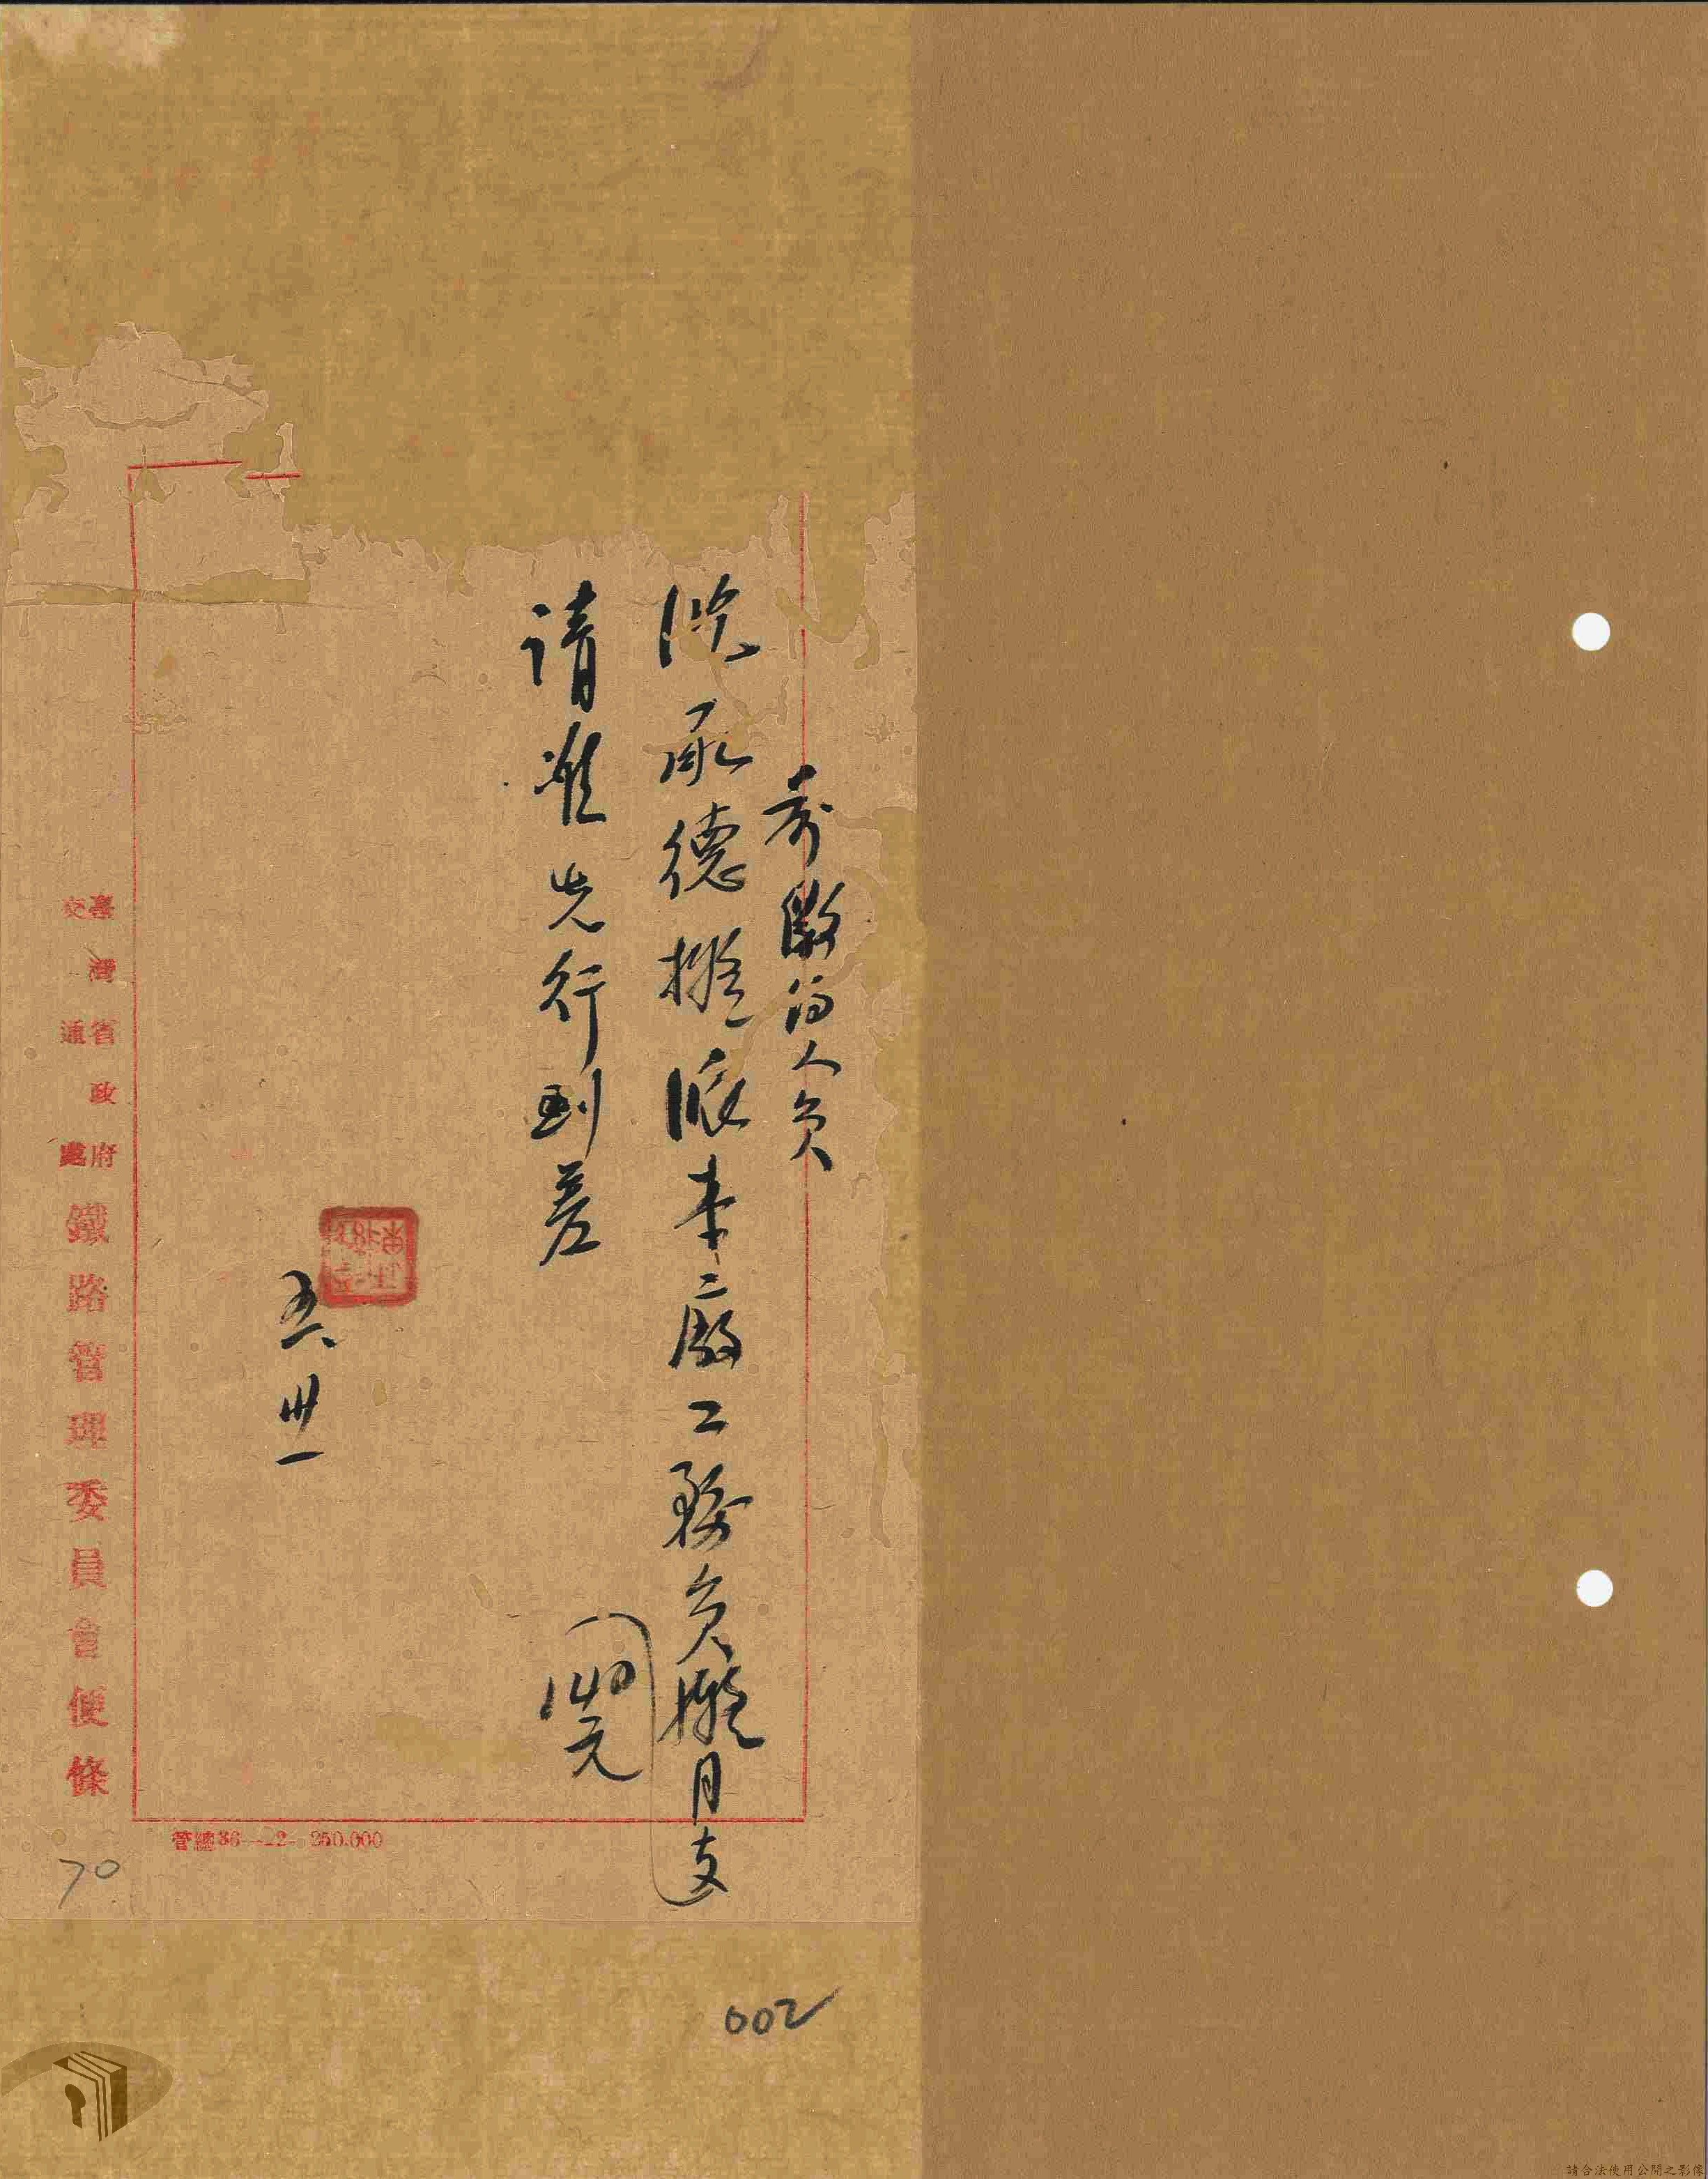 承德擬派本廠工務員擬月支
140元
請准先行到差
五 卅一
臺灣省政府
交通處
鐵路管理委員會便條
管總36—2—250.000
70
002
請合法使用公開之影像